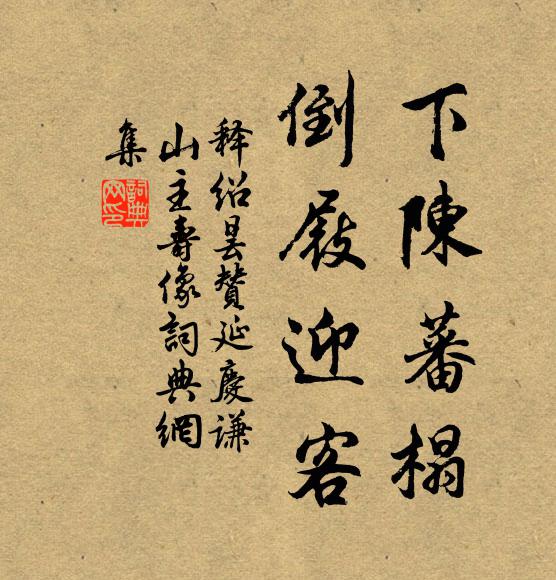 下陳蕃榻
倒屐迎客
释绍昙贊延慶谦
山主壽像詞典網
集
詞典网印